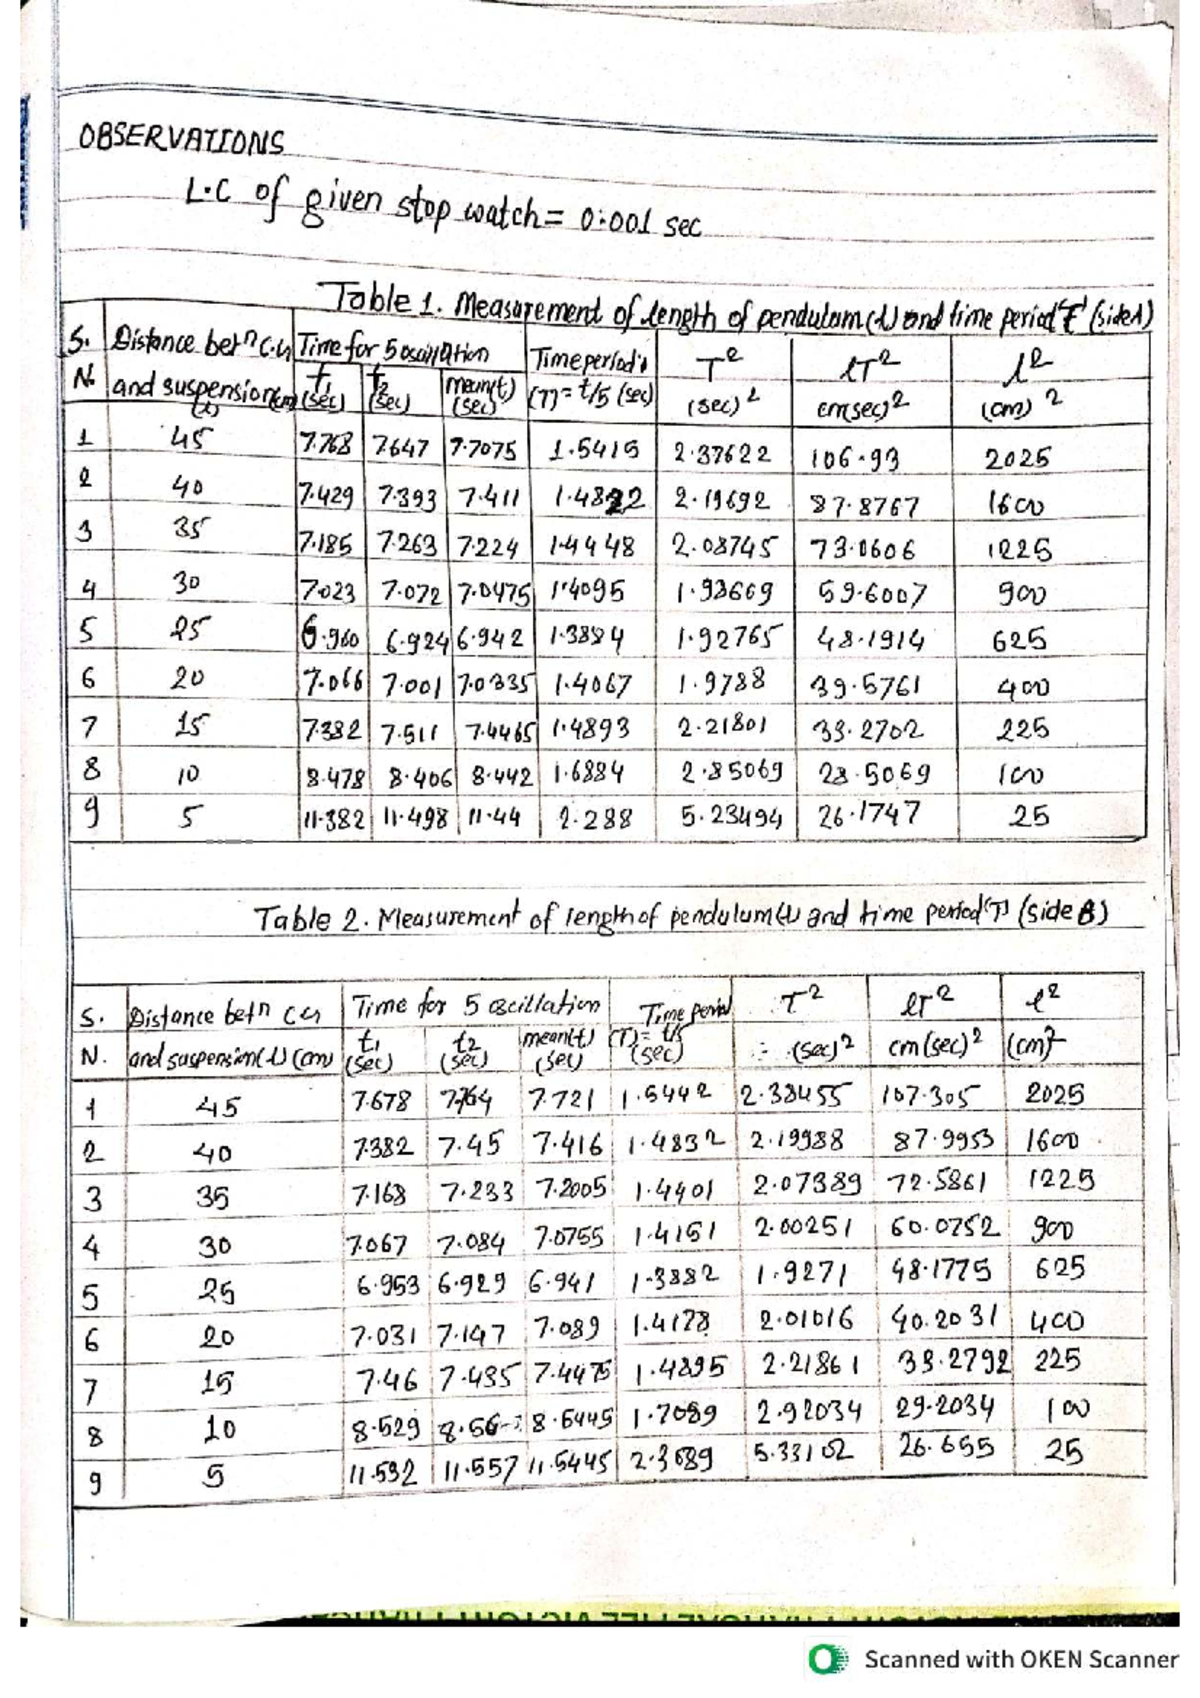 OBSERVATIONS
L.C of given stop watch = 0.001 sec
Table 1. Measurement of length of pendulum (L) and time period 'T' (side A)
S. N. | Distance betn C.G and suspension (cm) (l) | Time for 5 oscillation t1 (sec) | t2 (sec) | mean(t) (sec) | Time period (T) = t/5 (sec) | T² (sec)² | lT² cm(sec)² | l² (cm)²
1 | 45 | 7.768 | 7.647 | 7.7075 | 1.5415 | 2.37622 | 106.93 | 2025
2 | 40 | 7.429 | 7.393 | 7.411 | 1.4822 | 2.19692 | 87.8767 | 1600
3 | 35 | 7.185 | 7.263 | 7.224 | 1.4448 | 2.08745 | 73.0606 | 1225
4 | 30 | 7.023 | 7.072 | 7.0475 | 1.4095 | 1.98669 | 59.6007 | 900
5 | 25 | 6.960 | 6.924 | 6.942 | 1.3884 | 1.92765 | 48.1914 | 625
6 | 20 | 7.066 | 7.001 | 7.0335 | 1.4067 | 1.9788 | 39.5761 | 400
7 | 15 | 7.382 | 7.511 | 7.4465 | 1.4893 | 2.21801 | 33.2702 | 225
8 | 10 | 8.478 | 8.406 | 8.442 | 1.6884 | 2.85069 | 28.5069 | 100
9 | 5 | 11.382 | 11.498 | 11.44 | 2.288 | 5.23494 | 26.1747 | 25
Table 2. Measurement of length of pendulum (L) and time period (T) (side B)
S. N. | Distance betn CG and suspension (L) (cm) | Time for 5 oscillation t1 (sec) | t2 (sec) | mean(t) (sec) | Time period (T) = t/5 (sec) | T² (sec)² | lT² cm(sec)² | l² (cm)²
1 | 45 | 7.678 | 7.764 | 7.721 | 1.5442 | 2.38455 | 107.305 | 2025
2 | 40 | 7.382 | 7.45 | 7.416 | 1.4832 | 2.19988 | 87.9953 | 1600
3 | 35 | 7.168 | 7.233 | 7.2005 | 1.4401 | 2.07389 | 72.5861 | 1225
4 | 30 | 7.067 | 7.084 | 7.0755 | 1.4151 | 2.00251 | 60.0752 | 900
5 | 25 | 6.953 | 6.929 | 6.941 | 1.3882 | 1.9271 | 48.1775 | 625
6 | 20 | 7.031 | 7.147 | 7.089 | 1.4178 | 2.01016 | 40.2031 | 400
7 | 15 | 7.46 | 7.435 | 7.4475 | 1.4895 | 2.21861 | 33.2792 | 225
8 | 10 | 8.529 | 8.5445 | 1.7089 | 2.92034 | 29.2034 | 100
9 | 5 | 11.532 | 11.557 | 11.5445 | 2.3089 | 5.33102 | 26.655 | 25
Scanned with OKEN Scanner